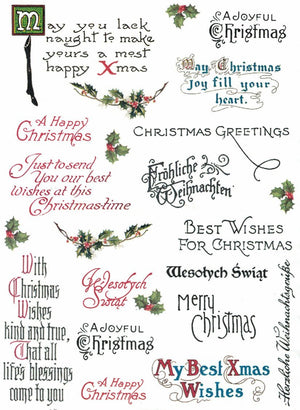 May you lack
naught to make
yours a most
happy Xmas
A Joyful
Christmas
May Christmas
Joy fill your
heart.
A Happy
Christmas
CHRISTMAS GREETINGS
Just to send
You our best
wishes at this
Christmas-time
Fröhliche
Weihnachten
BEST WISHES
FOR CHRISTMAS
With
Christmas
Wishes
kind and true,
That all
life's blessings
come to you
Wesołych
Świąt
Wesołych Świąt
Merry
Christmas
A JOYFUL
Christmas
A Happy
Christmas
My Best Xmas
Wishes
Herzliche Weihnachtsgrüße